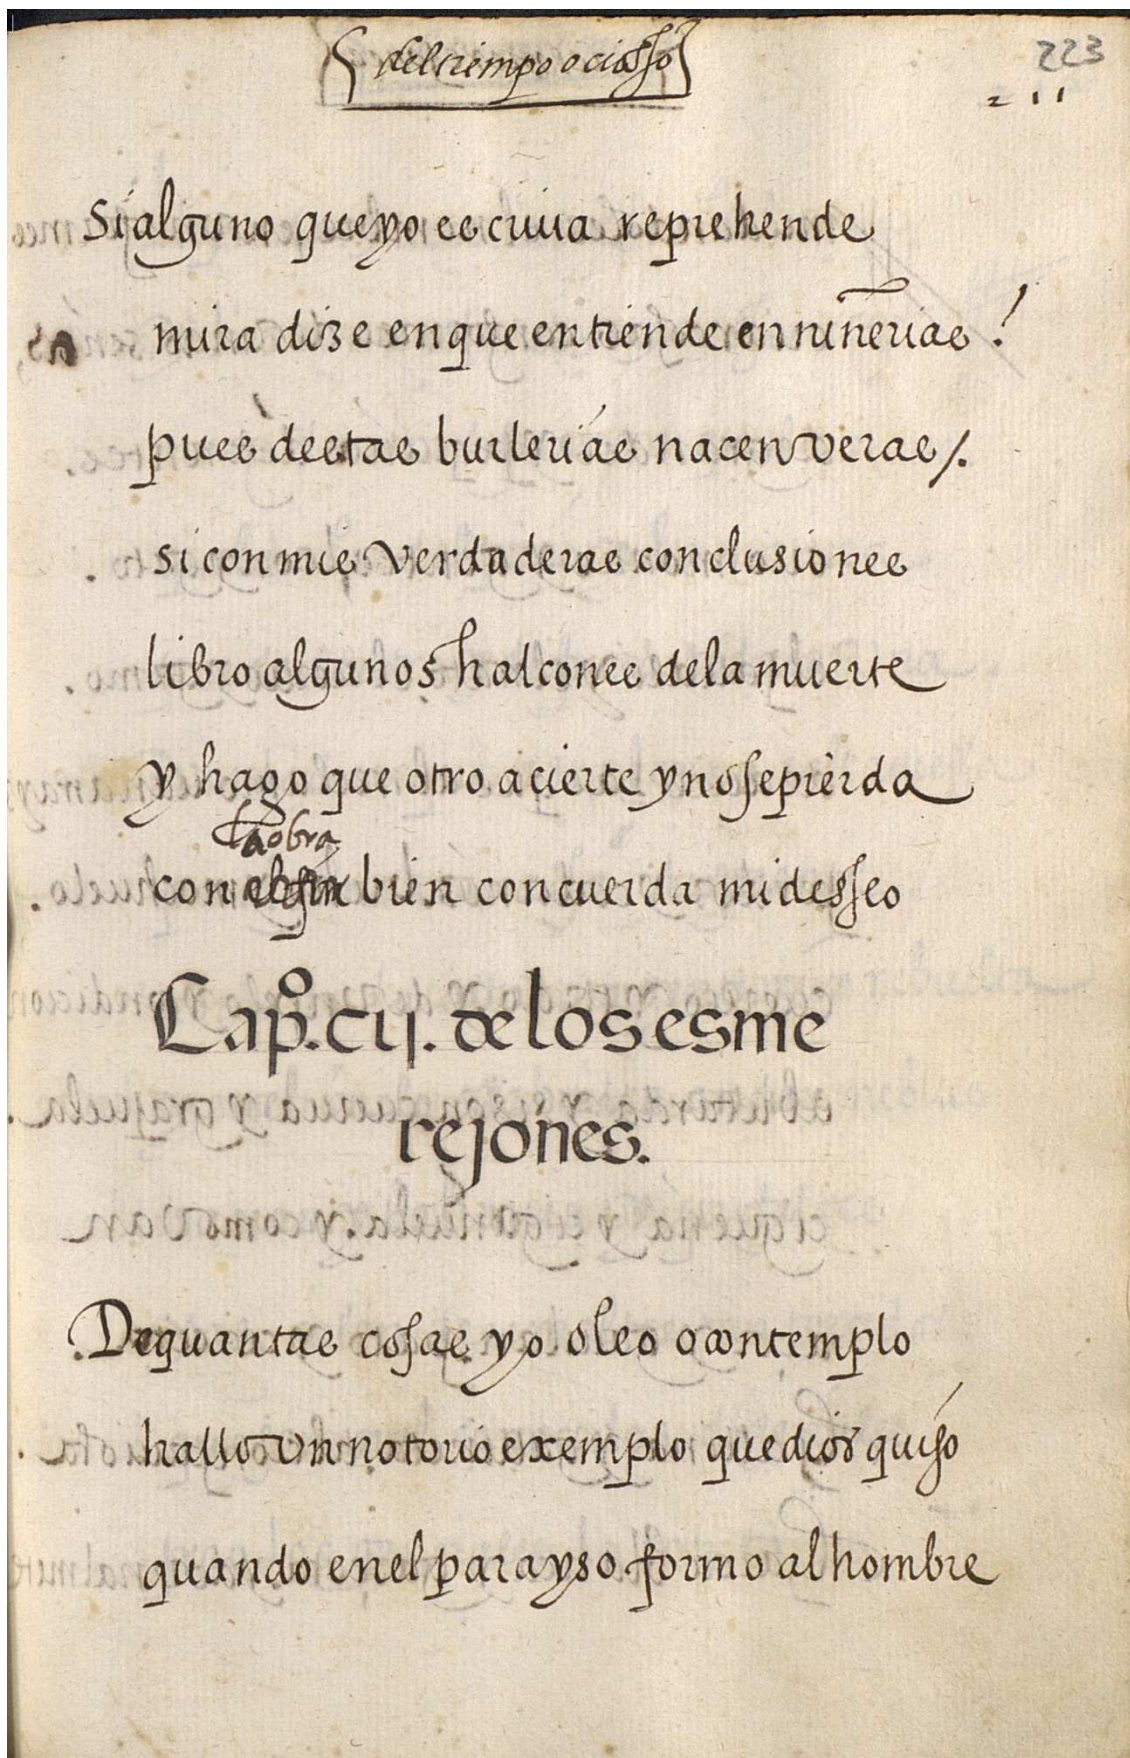 del tiempo ociosso
223
211
Si alguno que yo escriua reprehende
mira dize en que entiende en niñerias!
pues destas burlerias nacen veras/.
si con mis verdaderas conclusiones
libro algunos halcones de la muerte
y hago que otro acierte y no se pierda
la obra
con el fin bien concuerda mi desseo
Capº. cij. de los esme
rejones.
De quantas cosas yo oleo o contemplo
hallo vn notorio exemplo que dios quiso
quando en el parayso formo al hombre